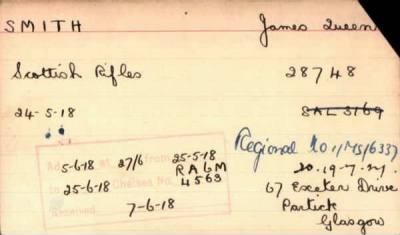 SMITH James Queen
Scottish Rifles 28748
24-5-18 SAL 3169
Regional 10/1/MS/6337
20-19-7-27.
5-6-18 27/6 25-5-18
RA6M
4563
25-6-18 Chelsea No.
67 Exeter Drive
Received 7-6-18
Partick
Glasgow